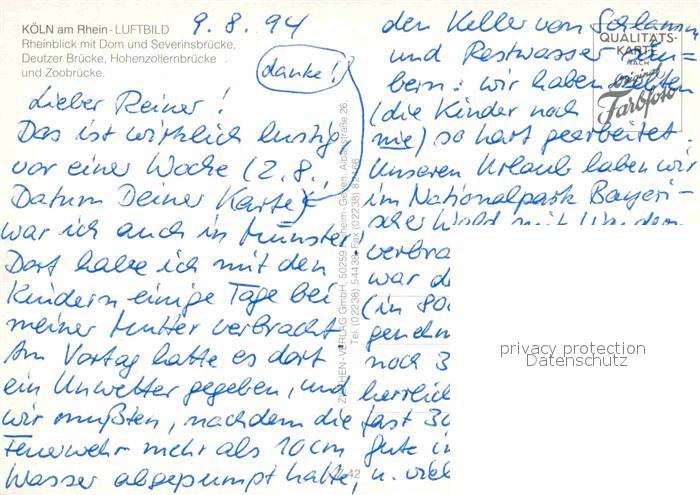 KÖLN am Rhein - LUFTBILD
Rheinblick mit Dom und Severinsbrücke,
Deutzer Brücke, Hohenzollernbrücke
und Zoobrücke.
9.8.94
danke!
Lieber Reiner!
Das ist wirklich lustig
vor einer Woche (2.8.
Datum Deiner Karte)
war ich auch in Münster.
Dort habe ich mit den
Kindern einige Tage bei
meiner Mutter verbracht.
Am Vortag hatte es dort
ein Unwetter gegeben, und
wir mußten, nachdem die
Feuerwehr mehr als 10cm
Wasser abgepumpt hatte,
ZIETHEN-VERLAG GmbH, 50259
Tel. (02238) 54438 · Fax (02238)
den Keller von Schlamm
und Restwasser säu-
bern: wir haben selten
(die Kinder noch
nie) so hart gearbeitet.
Unseren Urlaub haben wir
im Nationalpark Bayeri-
scher Wald mit Wandern
verbra
war d
(in 80
genehm
noch 3
herrlich
fast 30
gute i
u. viel
QUALITÄTS-
KARTE
NACH
Original
Farbfoto
privacy protection
Datenschutz